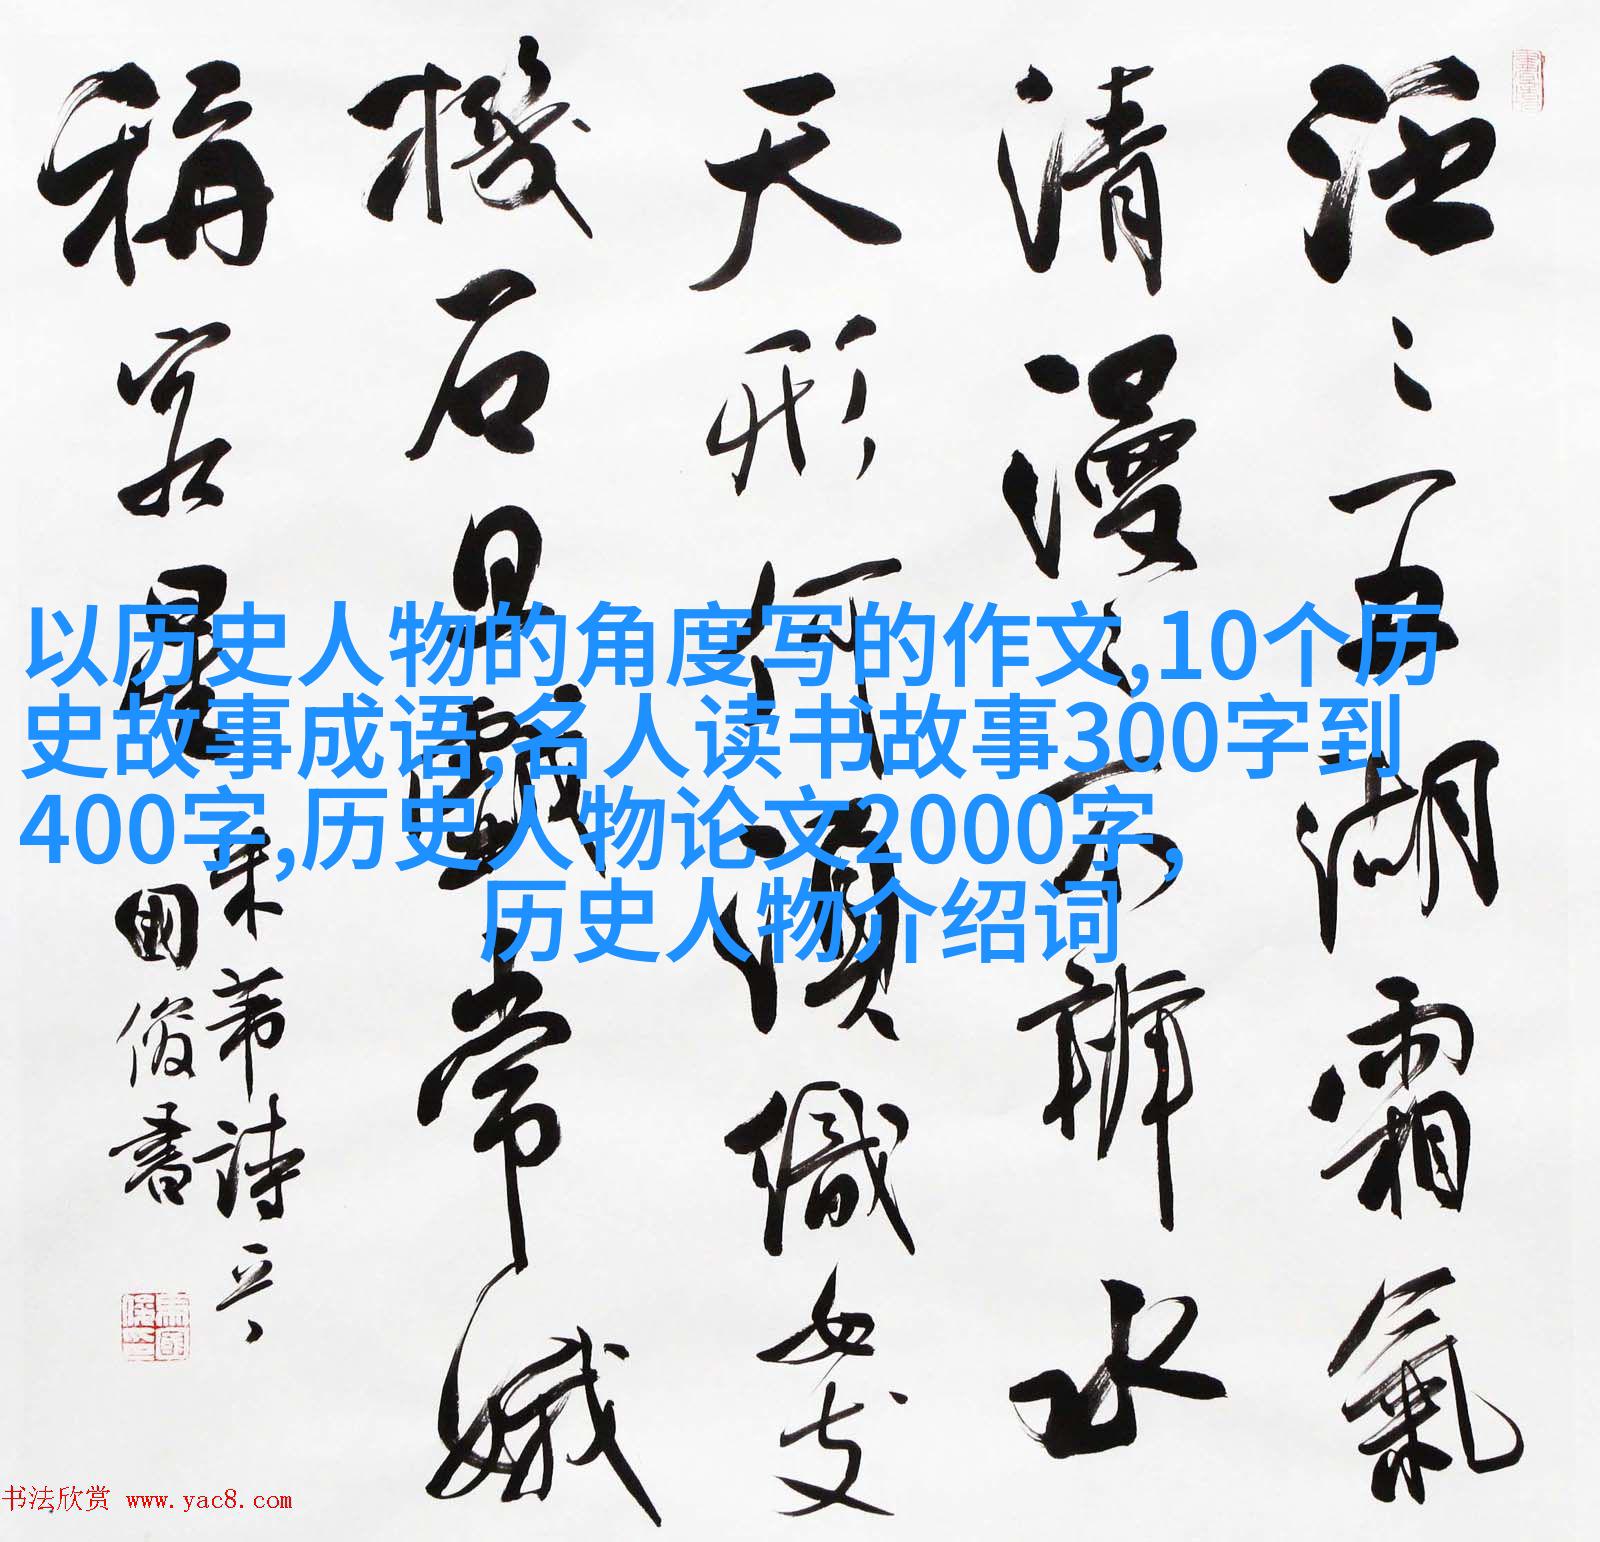 泛〻五湖霜氣
清漫〻不辨水
天形何須織女支
機石且戲常娥
稱客星
米芾詩
國俊書
以历史人物的角度写的作文,10个历
史故事成语,名人读书故事300字到
400字,历史人物论文2000字,
历史人物介绍词
书法欣赏 www.yac8.com